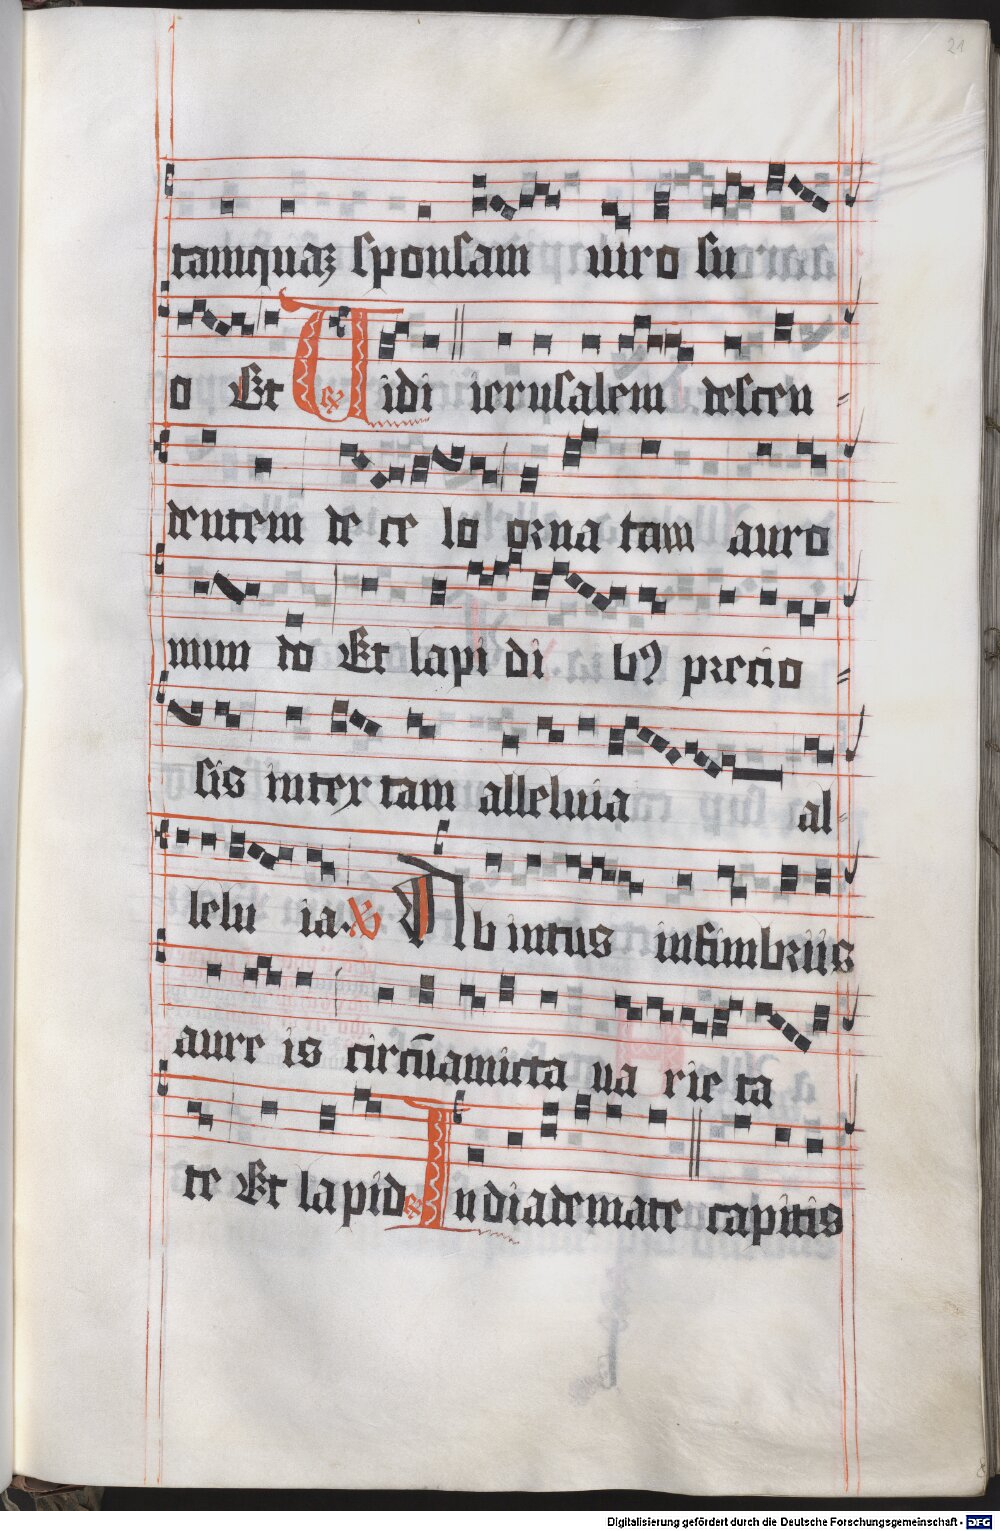 21
tamquaꝫ sponsam uiro su
o Et ℟ Vidi ierusalem descen⸗
dentem de ce lo orna tam auro
mun do Et lapi di bꝰ precio⸗
sis intex tam alleluia al⸗
lelu ia. ℣ Ab intus infimbriis
aure is circūamicta ua rie ta
te Et lapid ℟ In diademate capitis
Digitalisierung gefördert durch die Deutsche Forschungsgemeinschaft - DFG